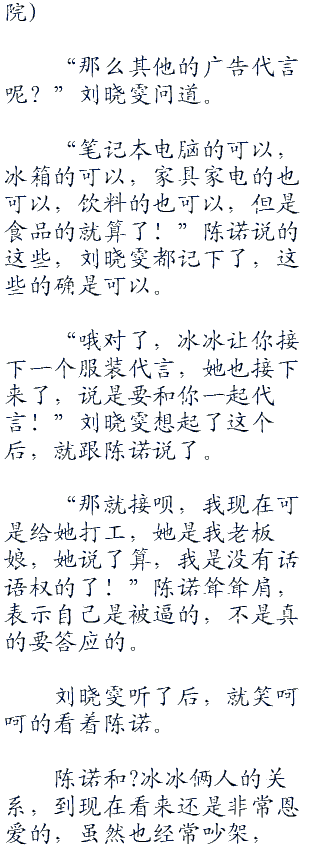 院）
“那么其他的广告代言
呢？”刘晓雯问道。
“笔记本电脑的可以，
冰箱的可以，家具家电的也
可以，饮料的也可以，但是
食品的就算了！”陈诺说的
这些，刘晓雯都记下了，这
些的确是可以。
“哦对了，冰冰让你接
下一个服装代言，她也接下
来了，说是要和你一起代
言！”刘晓雯想起了这个
后，就跟陈诺说了。
“那就接呗，我现在可
是给她打工，她是我老板
娘，她说了算，我是没有话
语权的了！”陈诺耸耸肩，
表示自己是被逼的，不是真
的要答应的。
刘晓雯听了后，就笑呵
呵的看着陈诺。
陈诺和?冰冰俩人的关
系，到现在看来还是非常恩
爱的，虽然也经常吵架，